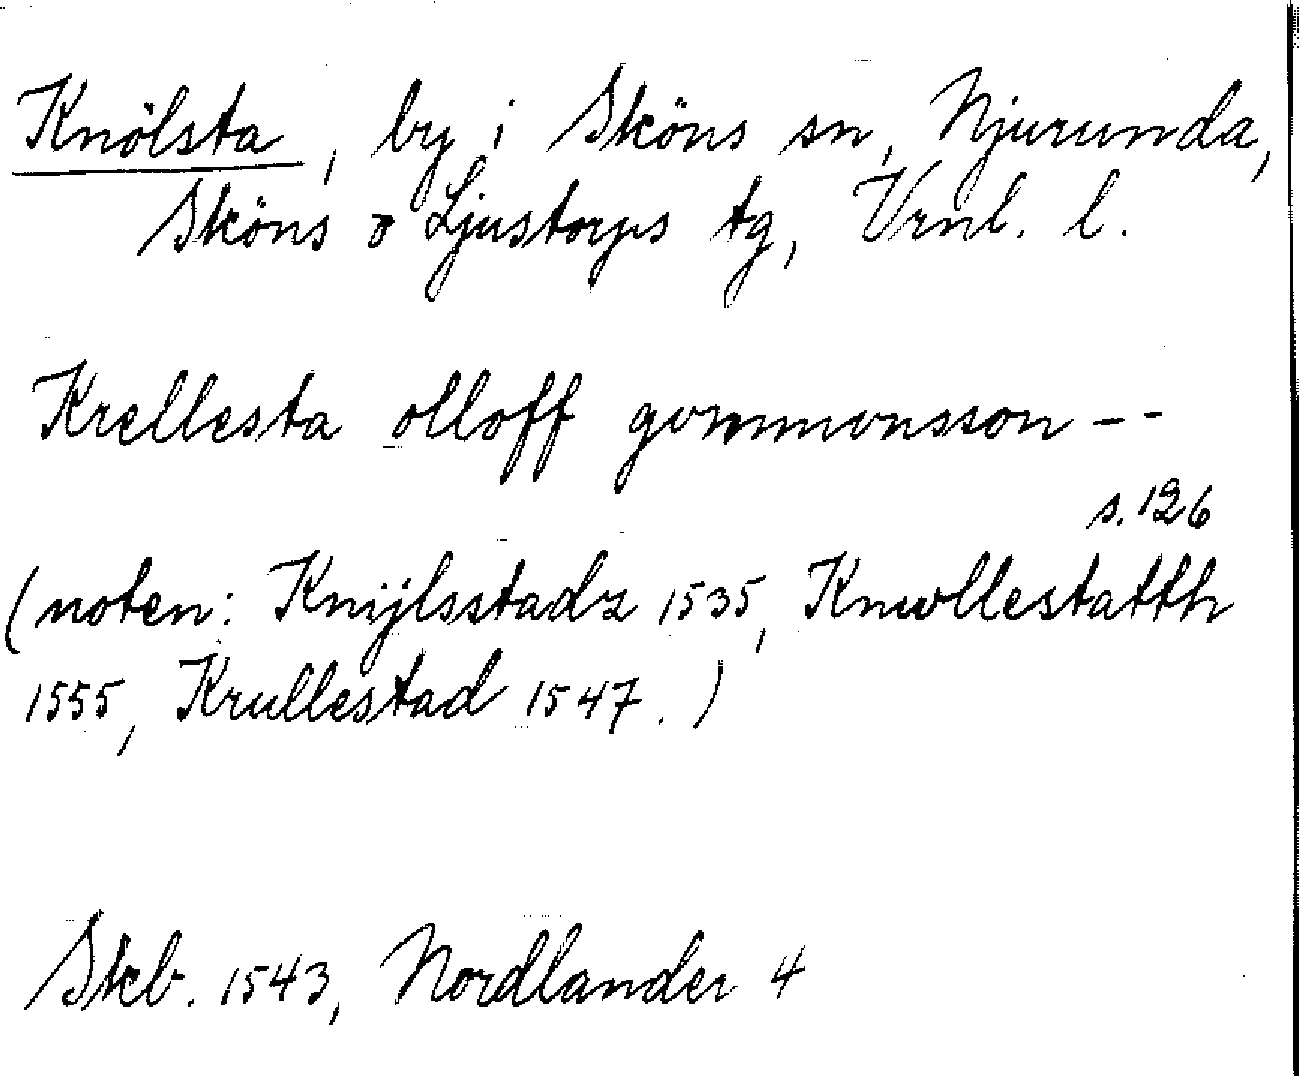 Knölsta, by i Sköns sn, Njurunda,
Sköns o Ljustorps tg, Vrnl. l.
Krellesta olloff gvnmvnsson --
s. 126
(noten: Knijlsstadz 1535, Knwllestatth
1555, Krullestad 1547.)
Skb. 1543, Nordlander 4